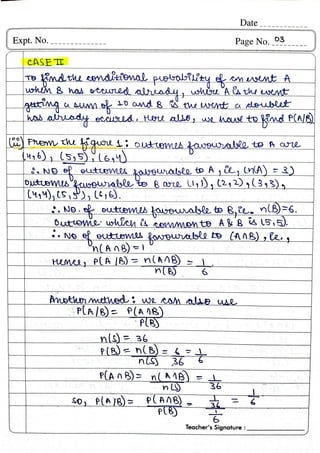 Date
Expt. No.
Page No. 03
CASE II
To find the conditional probability of an event A
when B has occured already, where A is the event
getting a sum of 10 and B is the event a doublet
has already occured. Here also, we have to find P(A/B)
From the figure 1: outcomes favourable to A are
(4,6), (5,5), (6,4)
∴ No. of outcomes favourable to A, ie, (n(A) = 3)
Outcomes favourable to B are (1,1), (2,2), (3,3),
(4,4), (5,5), (6,6).
∴ No. of outcomes favourable to B, ie. n(B)=6.
Outcome which is common to A & B is (5,5).
∴ No of outcomes favourable to (A∩B), ie.,
n(A∩B)=1
Hence, P(A/B) = n(A∩B)/n(B) = 1/6
Another method: we can also use
P(A/B) = P(A∩B)/P(B)
n(S) = 36
P(B) = n(B)/n(S) = 6/36 = 1/6
P(A∩B) = n(A∩B)/n(S) = 1/36
So, P(A/B) = P(A∩B)/P(B) = 1/36/1/6 = 1/6.
Teacher's Signature :